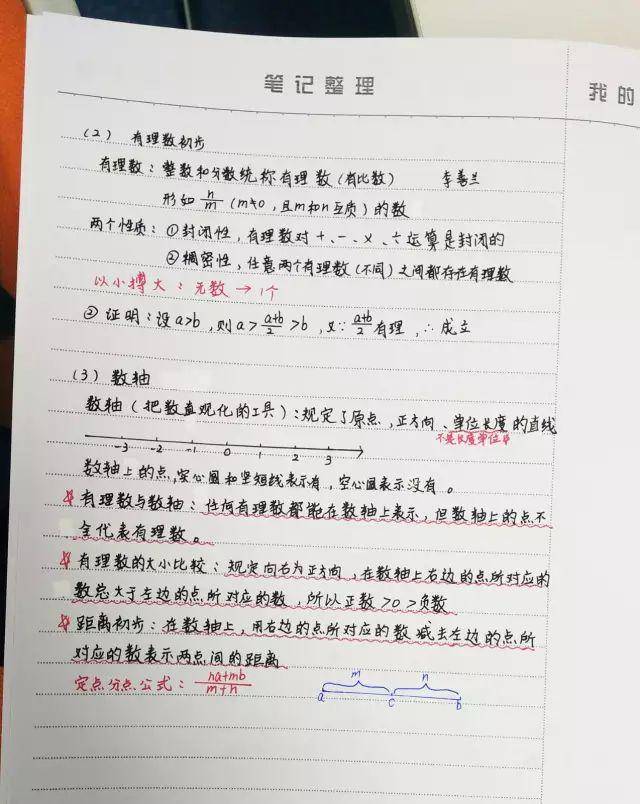 笔记整理
我的
(2) 有理数初步
有理数：整数和分数统称有理数(有比数) 李善兰
形如 n/m (m≠0，且m和n互质)的数
两个性质：①封闭性，有理数对＋、－、×、÷运算是封闭的
②稠密性，任意两个有理数(不同)之间都存在有理数
以小搏大：无数→1个
② 证明：设a>b，则a> a+b/2 >b，又∵ a+b/2 有理，∴成立
(3) 数轴
数轴(把数直观化的工具)：规定了原点，正方向、单位长度的直线
不是长度单位
-3 -2 -1 0 1 2 3
数轴上的点，实心圆和竖短线表示有，空心圆表示没有。
有理数与数轴：任何有理数都能在数轴上表示，但数轴上的点不
全代表有理数。
有理数的大小比较：规定向右为正方向，在数轴上右边的点所对应的
数总大于左边的点所对应的数，所以正数>0>负数
距离初步：在数轴上，用右边的点所对应的数减去左边的点所
对应的数表示两点间的距离
定点分点公式：na+mb/m+n
m n
a c b